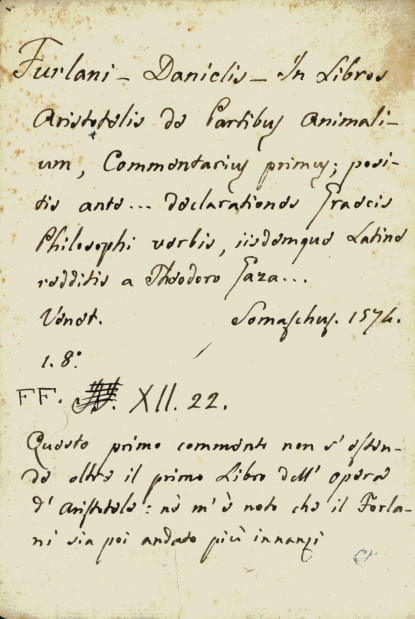 Furlani - Danielis - In Libros
Aristotelis de Partibus Animali-
um, Commentarius primus; posi-
tis ante... declarationes Graecis
Philosophi verbis, iisdemque Latine
redditis a Theodoro Gaza...
Venet. Somaschus. 1574.
1. 8.°
FF. XII. 22.
Questo primo commento non s'esten-
de oltre il primo Libro dell' opera
d' Aristotele: nè m' è noto che il Forla-
ni sia poi andato più innanzi